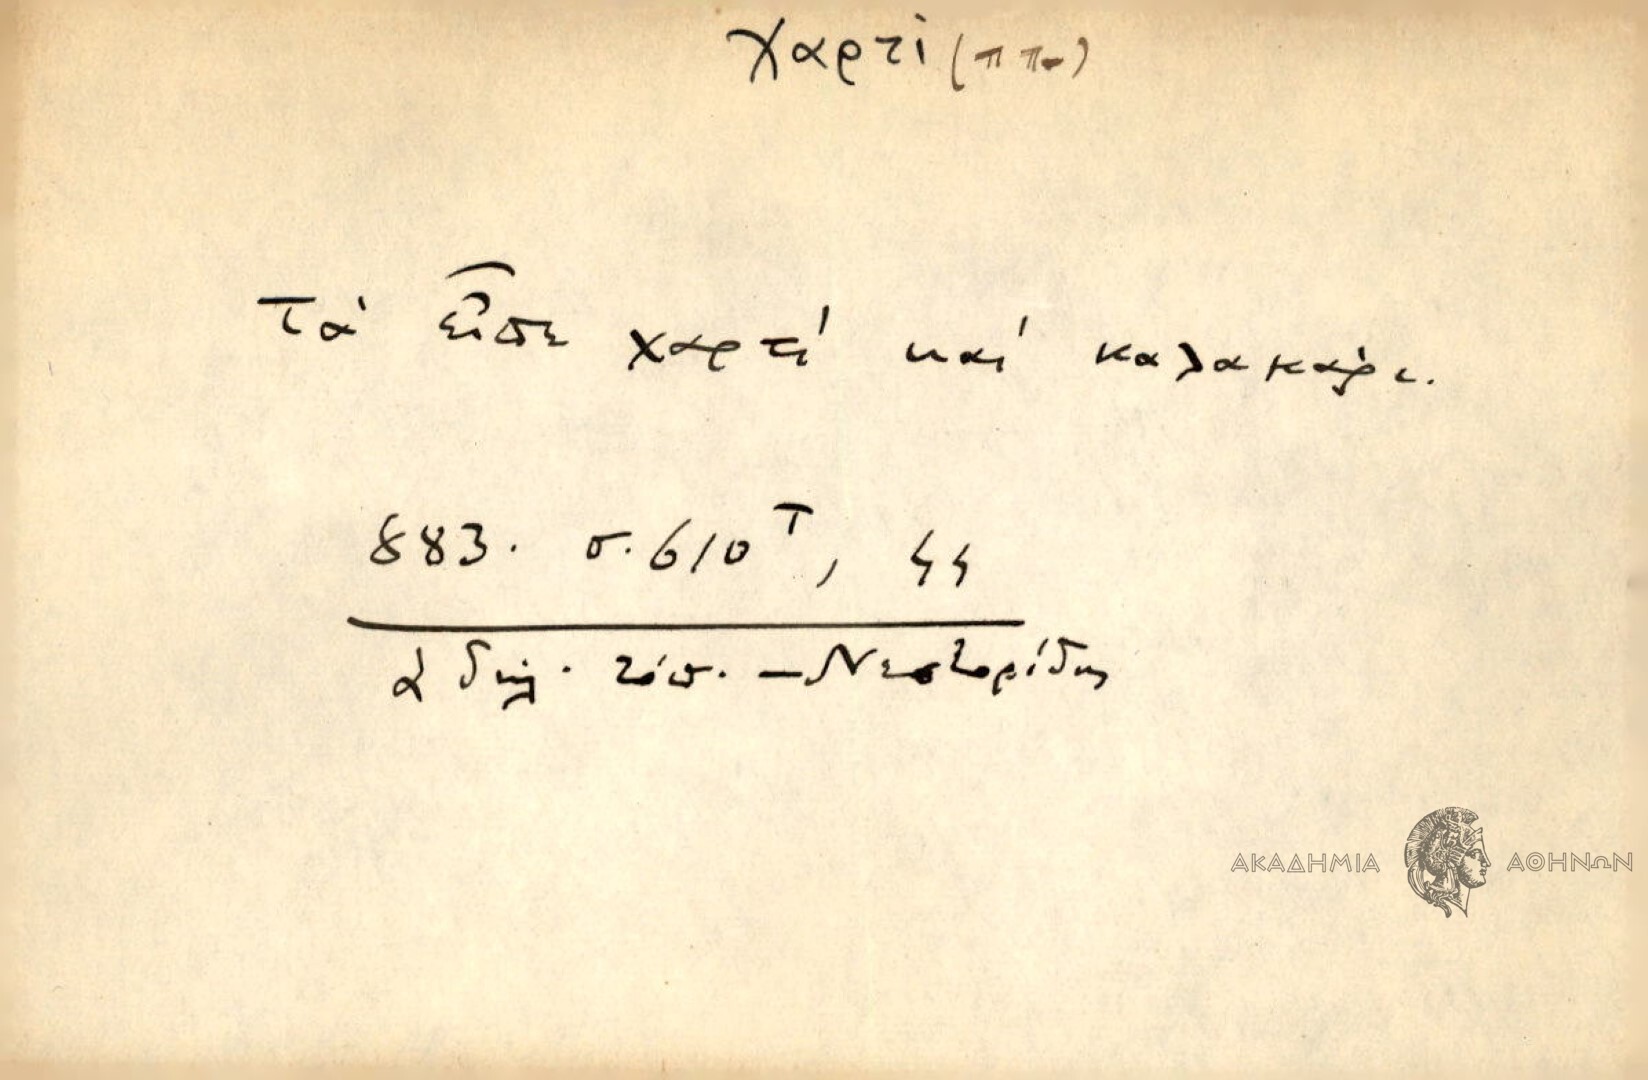 Χαρτὶ (ππ.)
Τὰ εἶπε χαρτί καί καλαμάρι.
883. σ. 610 Τ, 44
ἀδήλ. τόπ. – Νεστορίδης
ΑΚΑΔΗΜΙΑ ΑΘΗΝΩΝ